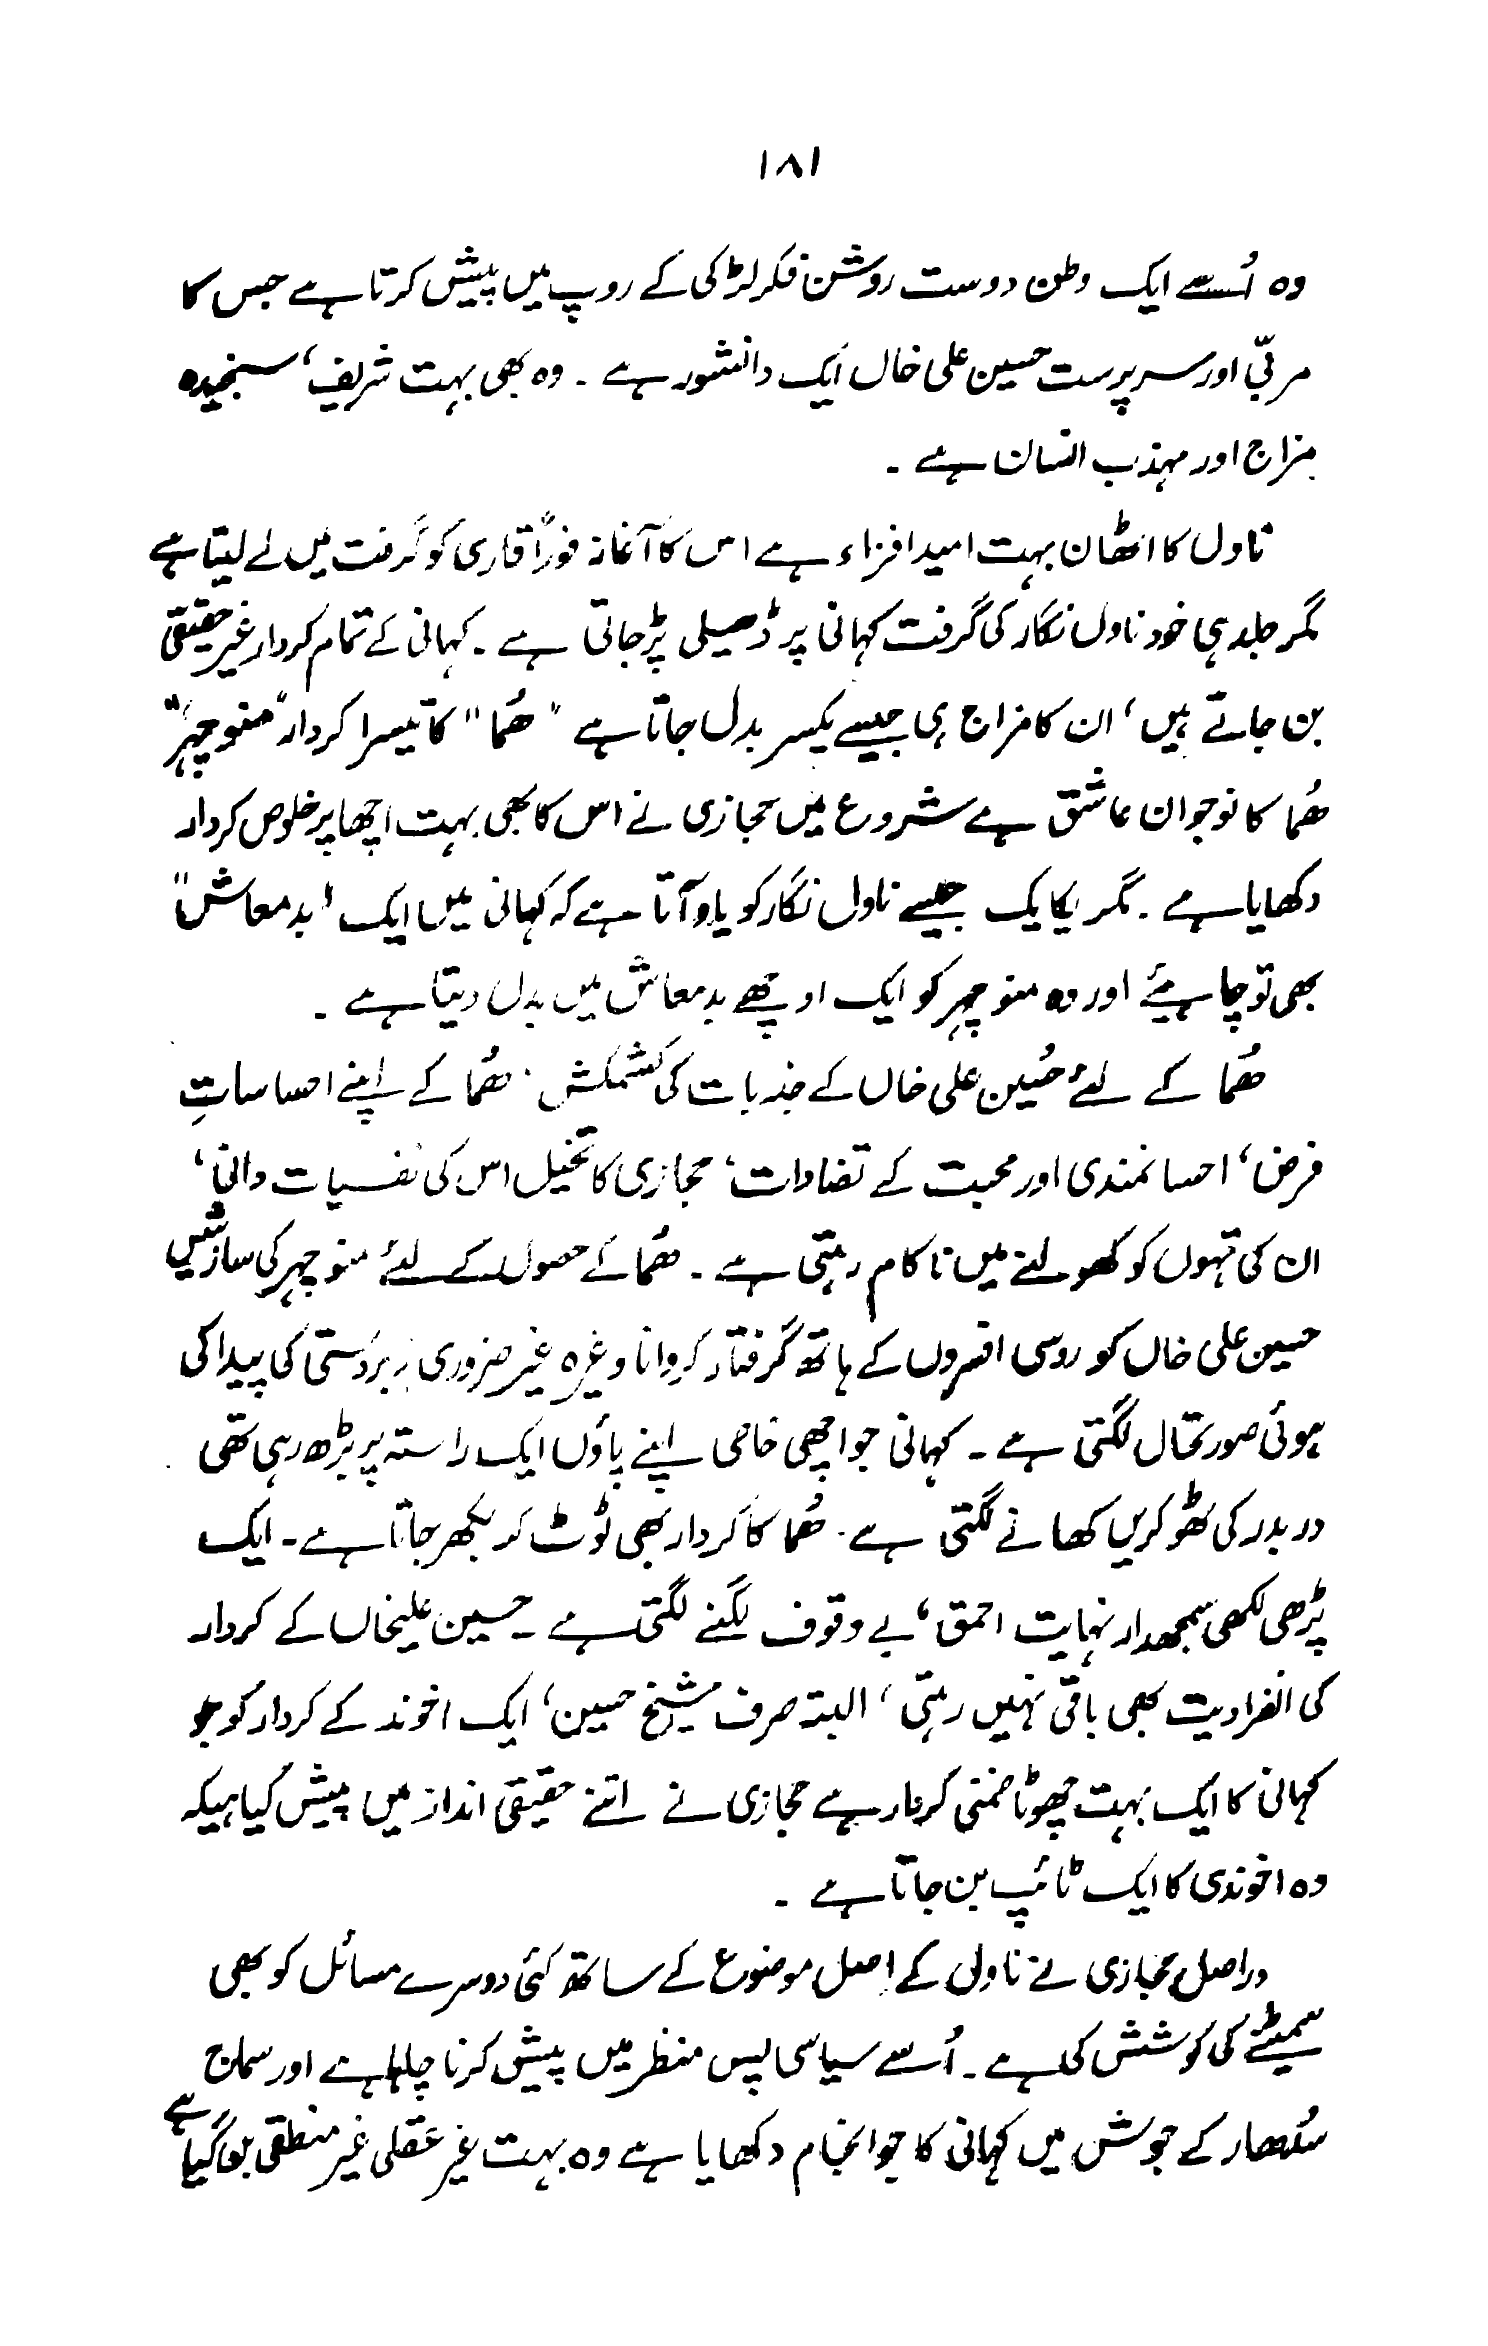 ۱۸۱
وہ اُسے ایک وطن دوست روشن فکر لڑکی کے روپ میں پیش کرتا ہے جس کا
مربّی اور سرپرست حسین علی خاں ایک دانشور ہے ۔ وہ بھی بہت شریف، سنجیدہ
مزاج اور مہذب انسان ہے ۔
ناول کا اٹھان بہت امید افزاء ہے اس کا آغاز فوراً قاری کو گرفت میں لے لیتا ہے
مگر جلد ہی خود ناول نگار کی گرفت کہانی پر ڈھیلی پڑ جاتی ہے ۔ کہانی کے تمام کردار غیر حقیقی
بن جاتے ہیں، ان کا مزاج ہی جیسے یکسر بدل جاتا ہے "ھُما" کا تیسرا کردار "منوچہر"
ھُما کا نوجوان عاشق ہے شروع میں حجازی نے اس کا بھی بہت اچھا پر خلوص کردار
دکھایا ہے ۔ مگر یکایک جیسے ناول نگار کو یاد آتا ہے کہ کہانی میں ایک "بدمعاش"
بھی تو چاہیئے اور وہ منوچہر کو ایک اوچھے بدمعاش میں بدل دیتا ہے ۔
ھُما کے لئے حُسین علی خاں کے جذبات کی کشمکش ۔ ھُما کے اپنے احساساتِ
فرض، احسانمندی اور محبت کے تضادات، حجازی کا تخیل اس کی نفسیات دانی،
ان کی تہوں کو کھولنے میں ناکام رہتی ہے ۔ ھُما کے حصول کے لئے منوچہر کی سازشیں
حسین علی خاں کو روسی افسروں کے ہاتھ گرفتار کروانا وغیرہ غیر ضروری زبردستی کی پیدا کی
ہوئی صورتحال لگتی ہے ۔ کہانی جو اچھی خاصی اپنے پاؤں ایک راستہ پر بڑھ رہی تھی
در بدر کی ٹھوکریں کھانے لگتی ہے ۔ ھُما کا کردار بھی ٹوٹ کر بکھر جاتا ہے ۔ ایک
پڑھی لکھی سمجھدار نہایت احمق، بے وقوف لگنے لگتی ہے ۔ حسین علیخاں کے کردار
کی انفرادیت بھی باقی نہیں رہتی، البتہ صرف شیخ حسین، ایک اخوند کے کردار کو جو
کہانی کا ایک بہت چھوٹا ضمنی کردار ہے حجازی نے اتنے حقیقی انداز میں پیش کیا ہیکہ
وہ اخوندی کا ایک ٹائپ بن جاتا ہے ۔
دراصل حجازی نے ناول کے اصل موضوع کے ساتھ کئی دوسرے مسائل کو بھی
سمیٹنے کی کوشش کی ہے ۔ اُسے سیاسی پس منظر میں پیش کرنا چاہا ہے اور سماج
سُدھار کے جوش میں کہانی کا جو انجام دکھایا ہے وہ بہت غیر عقلی غیر منطقی ہو گیا ہے